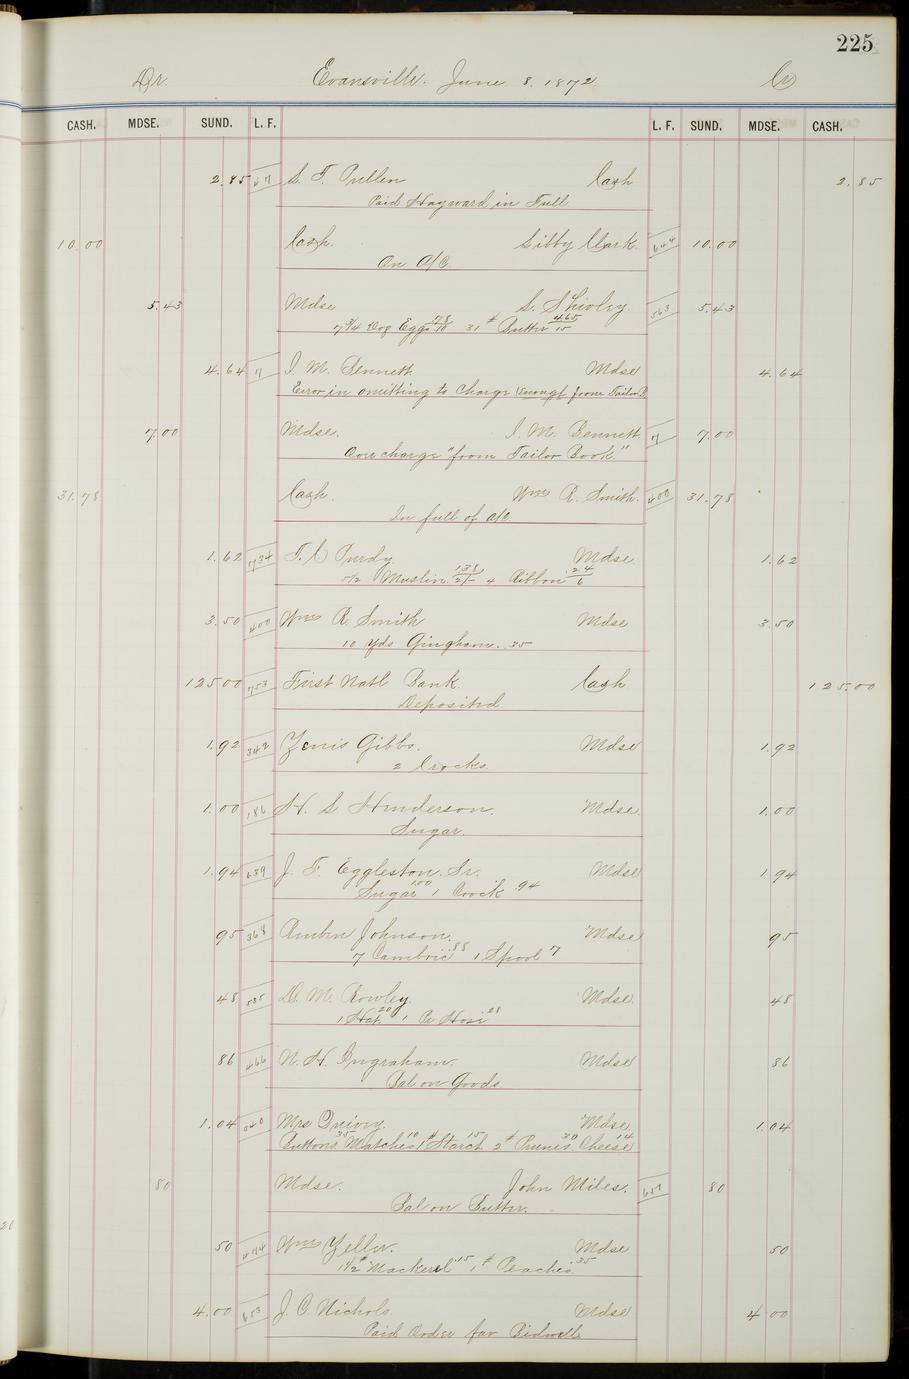 225
Dr. Evansville. June 8. 1872 Cr
CASH. MDSE. SUND. L. F. L. F. SUND. MDSE. CASH.
2.85 67 S. T. Pullen Cash 2.85
Paid Hayward in Full
10.00 Cash. Libby Clark 644 10.00
On A/C.
5.43 Mdse S. Shivley. 563 5.43
7 3/4 Doz Eggs 78/10 31 # Butter 4.65/15
4.64 71 I. M. Bennett Mdse 4.64
Error in omitting to charge from Tailor B
7.00 Mdse. I. M. Bennett 71 7.00
Over charge "from Tailor Book"
31.78 Cash. Wm R. Smith. 400 31.78
In full of a/c
1.62 734 T. C Purdy. Mdse 1.62
Muslin 1.38 4 Ribbon .24/6
3.50 400 Wm R. Smith Mdse 3.50
10 Yds Gingham. .35
125 00 753 First Natl Bank. Cash 125.00
Deposited
1.92 342 Zenis Gibbs. Mdse 1.92
2 Crocks.
1.00 186 H. S. Henderson. Mdse. 1.00
Sugar.
1.94 639 J. F. Eggleston. Sr. Mdse 1.94
Sugar 1.00 1 Crock .94
95 368 Reuben Johnson. Mdse 95
7 Cambric .88 1 Spool 7
48 535 D. M. Rowley Mdse. 48
1 Hat. 20 1 Pr Hose 28
86 466 N. H. Ingraham. Mdse 86
Bal on Goods
1.04 Mrs Quivey. Mdse 1.04
Buttons 35 Matches 10 1 # Starch 15 2 # Prunes 30 Cheese 14
80 Mdse. John Miles. 657 80
Bal on Butter.
50 474 Wm Yeller. Mdse 50
1 1/2 # Mackerel .15 1 # Peaches .35
4.00 653 J. C. Nichols. Mdse 4 00
Paid Order for Bidwell